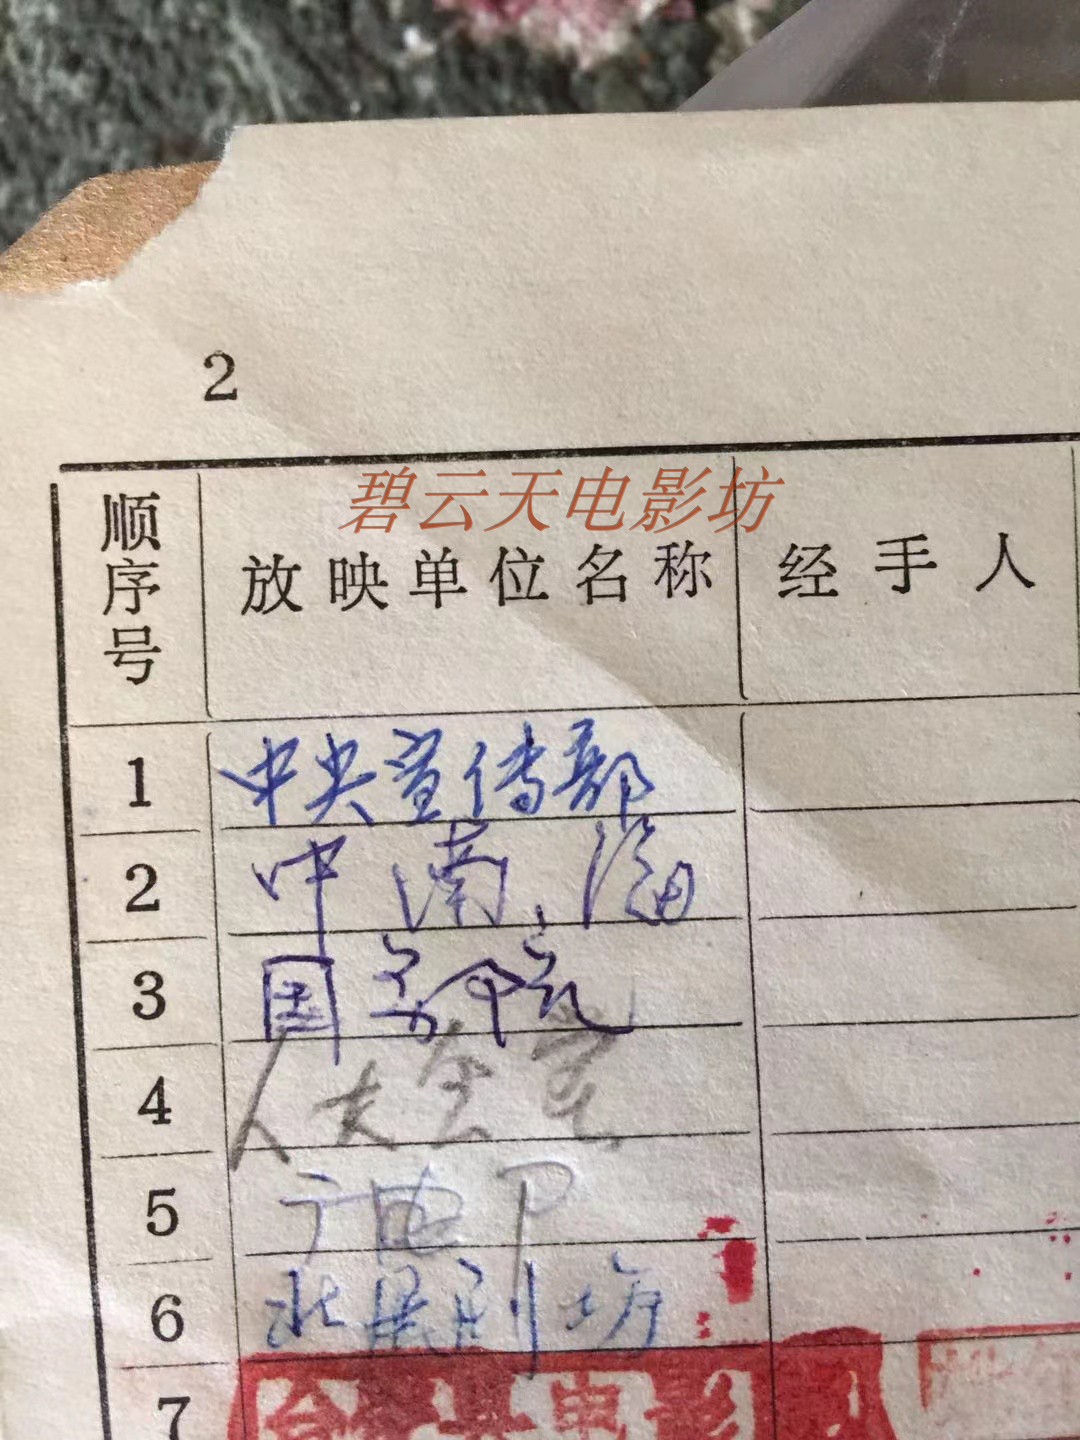 2
碧云天电影坊
顺序号 放映单位名称 经手人
1 中央宣传部
2 中南海
3 国务院
4 人大会堂
5 广电部
6 北展剧场
7 电影